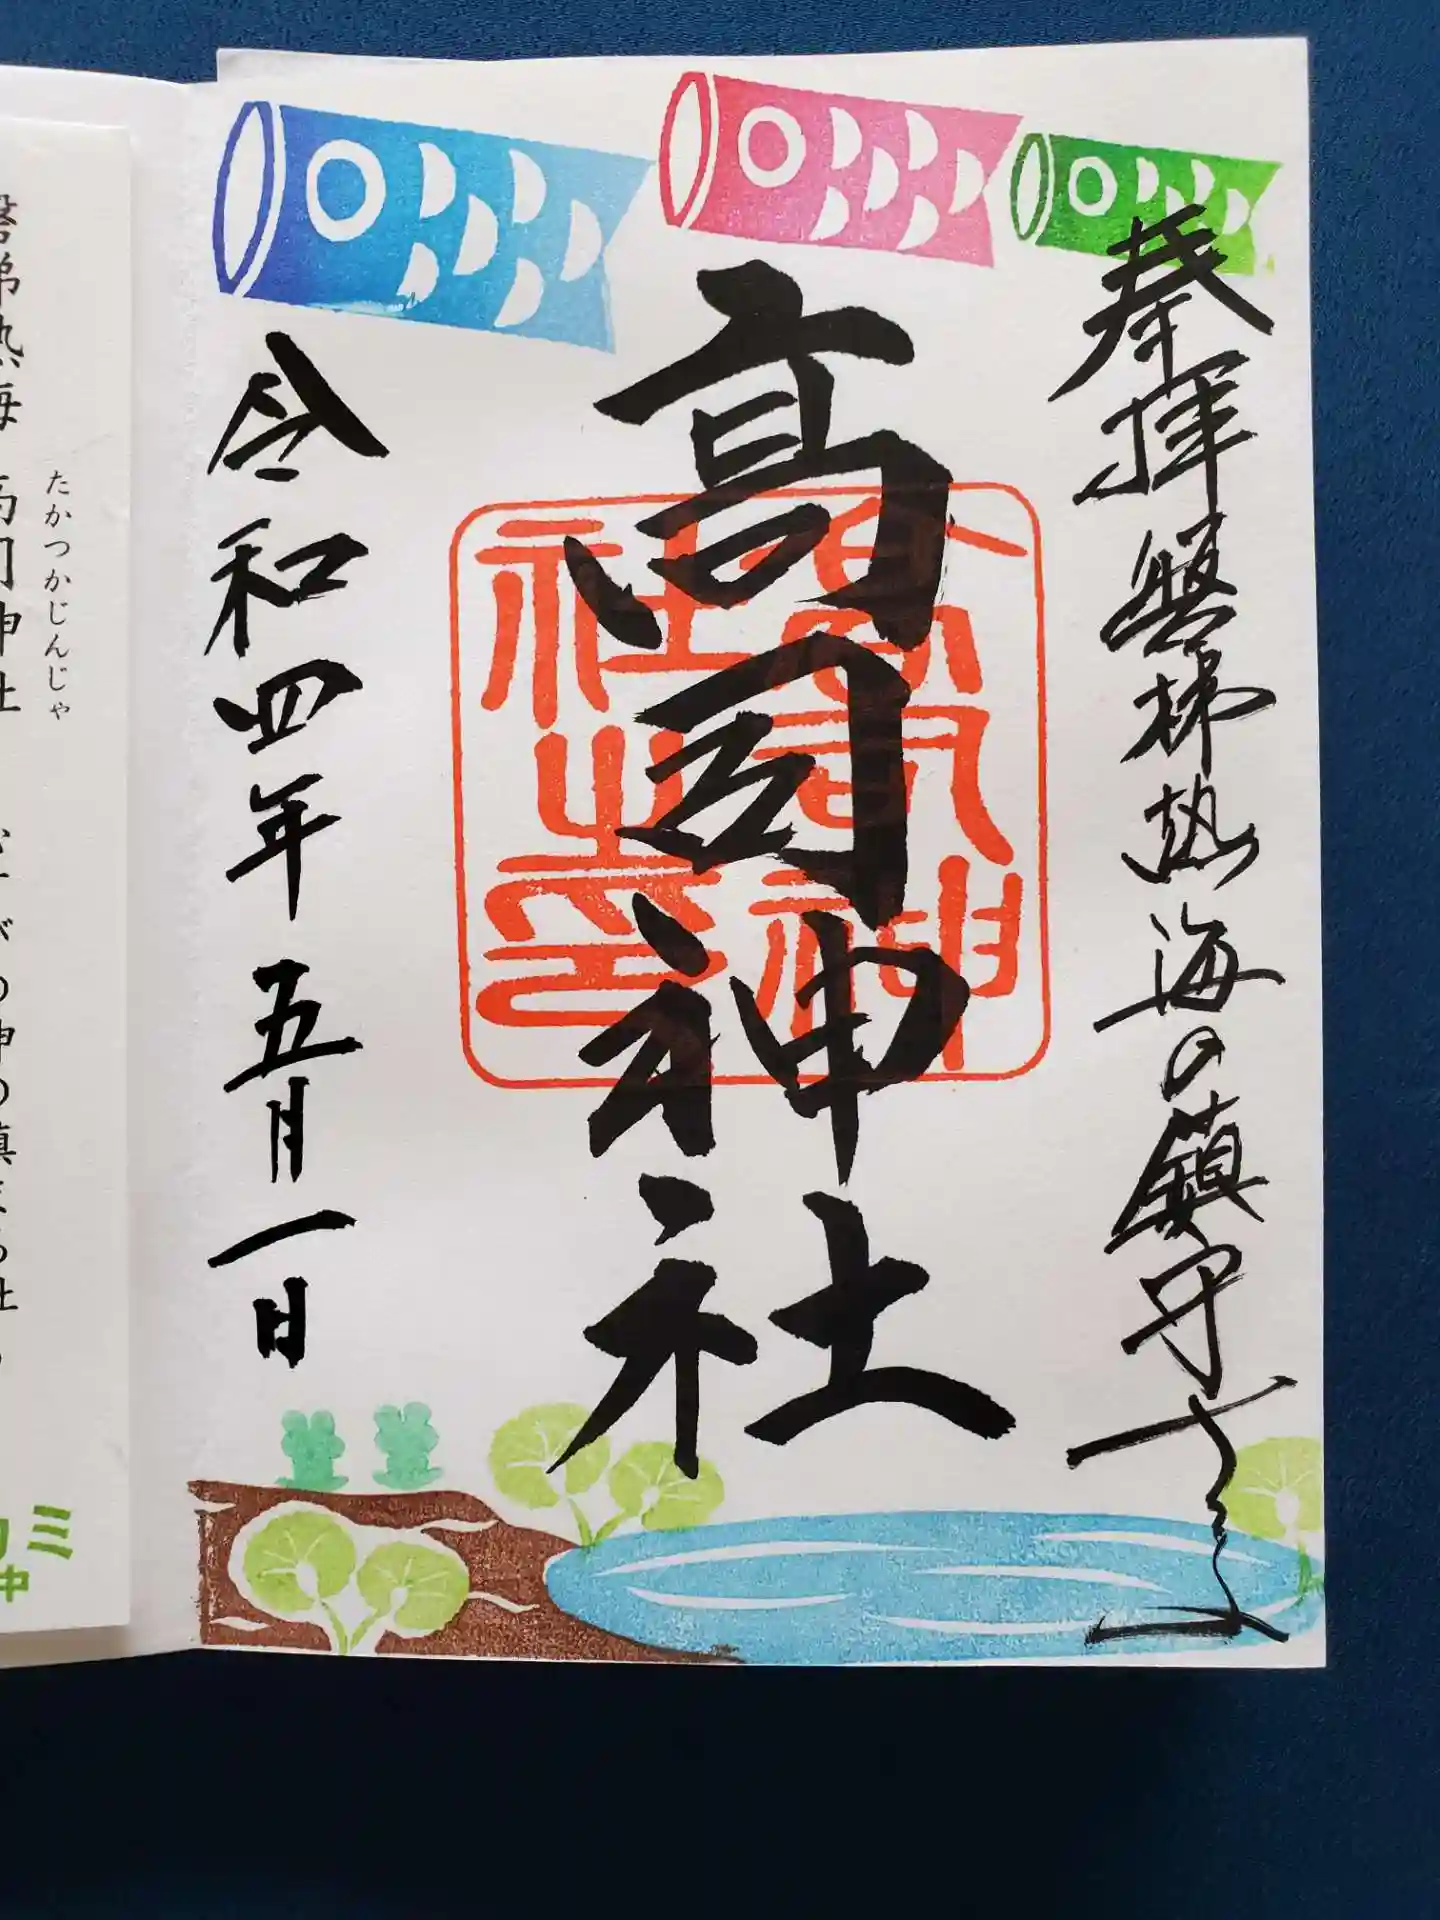 奉拝 磐梯熱海の鎮守
高司神社
高司神社之印
令和四年五月一日
たかつかじんじゃ
磐梯熱海 高司神社